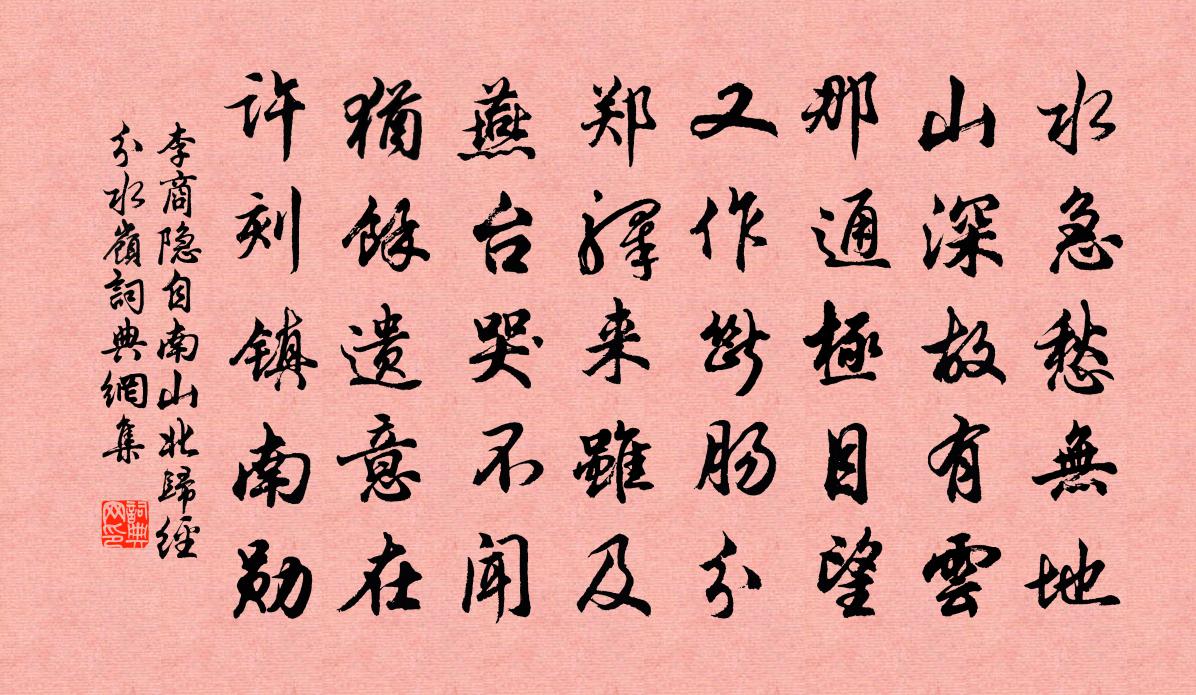 水急愁無地
山深故有雲
那通極目望
又作斷腸分
郑驛来雖及
燕台哭不聞
猶餘遺意在
許刻鎮南勋
李商隐自南山北歸經
分水嶺詞典網集
詞典
网印